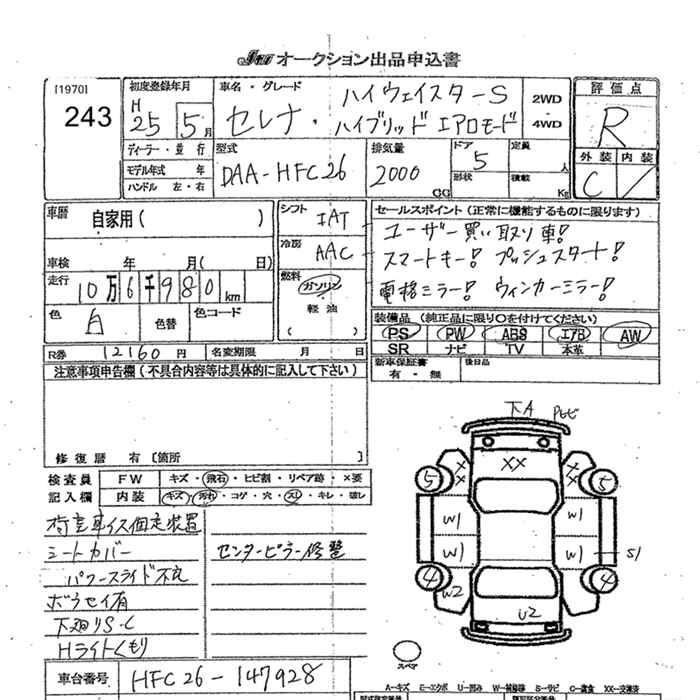 オークション出品申込書
[1970]
243
初度登録年月
H
25 5月
車名・グレード
セレナ・ハイウェイスターS
ハイブリッド エアロモード
2WD
4WD
評価点
R
外装 内装
C
ディーラー・並行
モデル年式 年
ハンドル 左・右
型式
DAA-HFC26
排気量
2000
CC
ドア
5
形状
定員
人
積載
Kg
車暦
自家用( )
シフト IAT
冷房 AAC
燃料
ガソリン
軽油
( )
セールスポイント(正常に機能するものに限ります)
ユーザー買い取り車!
スマートキー! プッシュスタート!
電格ミラー! ウィンカーミラー!
車検 年 月( 日)
走行 10万6千980km
色 白 色替 色コード
装備品(純正品に限り○を付けてください)
PS PW ABS エアB AW
SR ナビ TV 本革
R券 12160円 名変期限 月 日
新車保証書
有・無
後日品
注意事項申告欄(不具合内容等は具体的に記入して下さい)
修復暦 有[箇所
検査員
記入欄
FW キズ・飛石・ヒビ割・リペア跡・×要
内装 キズ・汚れ・コゲ・穴・スレ・キレ・壊し
シートカバー
パワースライド不良
ボウセイ有
下廻りS・C
Hライトくもり
センターピラー修整
車台番号 HFC26-147928
下A
XX
5
5
W1
W1
W1
W1
S1
4
4
W2
U2
スペマ
A-キズ E-エクボ U-凹み